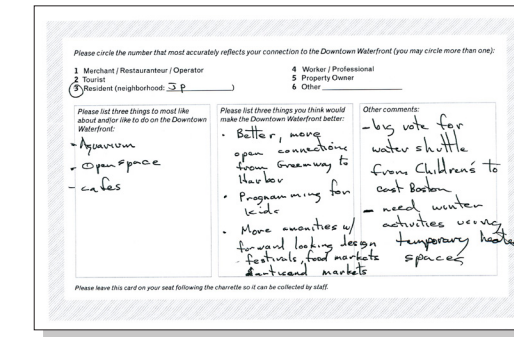 Please circle the number that most accurately reflects your connection to the Downtown Waterfront (you may circle more than one):
1 Merchant / Restauranteur / Operator
2 Tourist
3 Resident (neighborhood: JP )
4 Worker / Professional
5 Property Owner
6 Other
Please list three things to most like
about and/or like to do on the Downtown
Waterfront:
- Aquarium
- Open space
- cafes
Please list three things you think would
make the Downtown Waterfront better:
• Better, more
open connections
from Greenway to
Harbor
• Programming for
kids
• More amenities w/
forward looking design
- festivals, food markets
& artisand markets
Other comments:
- big vote for
water shuttle
from Children's to
east Boston
- need winter
activities using
temporary heated
spaces
Please leave this card on your seat following the charrette so it can be collected by staff.